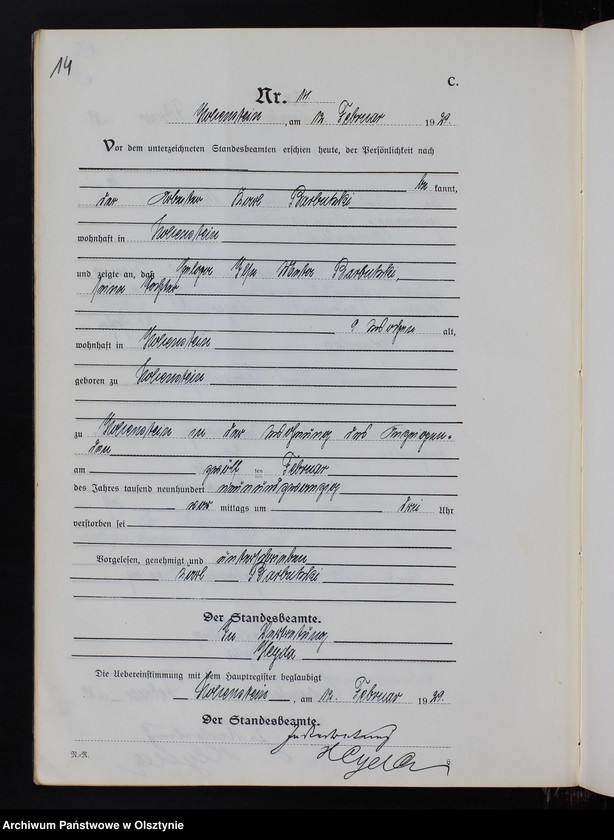 14
C.
Nr. 14.
Hohenstein, am 12. Februar 1929.
Vor dem unterzeichneten Standesbeamten erschien heute, der Persönlichkeit nach
be kannt,
der Arbeiter Karl Barbutzki
wohnhaft in Hohenstein
und zeigte an, daß Elsa Barbutzki,
seine Tochter
9 Wochen alt,
wohnhaft in Hohenstein
geboren zu Hohenstein
zu Hohenstein in der Wohnung des Anzeigen-
den
am zwölf ten Februar
des Jahres tausend neunhundert neunundzwanzig
vor mittags um drei Uhr
verstorben sei
Vorgelesen, genehmigt und unterschrieben
Karl Barbutzki
Der Standesbeamte.
In Vertretung
Heyda
Die Uebereinstimmung mit dem Hauptregister beglaubigt
Hohenstein, am 12. Februar 1929.
Der Standesbeamte.
In Vertretung
Heyda
N.-R.
Archiwum Państwowe w Olsztynie